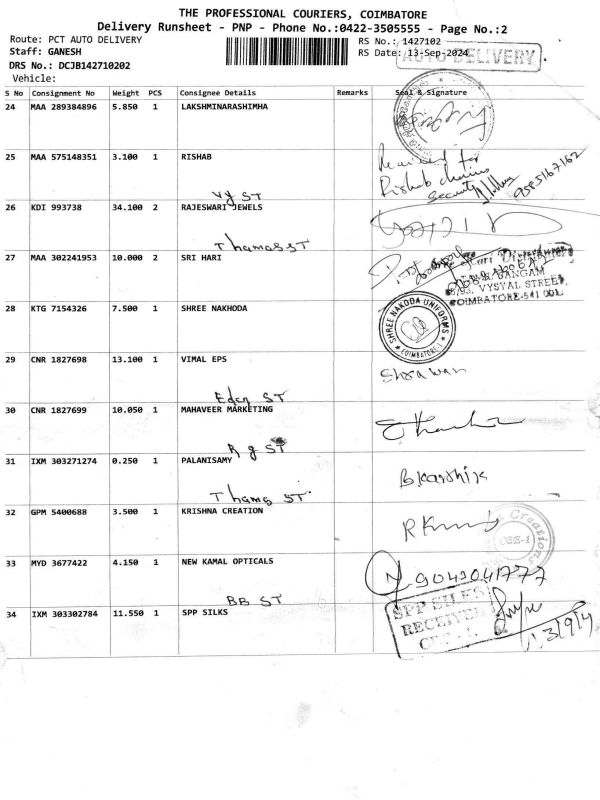 THE PROFESSIONAL COURIERS, COIMBATORE
Delivery Runsheet - PNP - Phone No.:0422-3505555 - Page No.:2
Route: PCT AUTO DELIVERY
RS No.: 1427102
Staff: GANESH
RS Date: 13-Sep-2024
AUTO DELIVERY
DRS No.: DCJB142710202
Vehicle:
S No Consignment No Weight PCS Consignee Details Remarks Seal & Signature
24 MAA 289384896 5.850 1 LAKSHMINARASHIMHA
25 MAA 575148351 3.100 1 RISHAB
Received for
Rishab
Security
9585167162
Vy ST
26 KDI 993738 34.100 2 RAJESWARI JEWELS
Thomas ST
27 MAA 302241953 10.000 2 SRI HARI
VYSYAL STREET,
COIMBATORE-541 001.
28 KTG 7154326 7.500 1 SHREE NAKHODA
SHREE NAKODA UNIFORMS
COIMBATORE-1
29 CNR 1827698 13.100 1 VIMAL EPS
Sharawan
Eden ST
30 CNR 1827699 10.050 1 MAHAVEER MARKETING
R g ST
31 IXM 303271274 0.250 1 PALANISAMY
B.karthik
Thams ST
32 GPM 5400688 3.500 1 KRISHNA CREATION
Creations
CBE-1
33 MYD 3677422 4.150 1 NEW KAMAL OPTICALS
9043041777
BB ST
34 IXM 303302784 11.550 1 SPP SILKS
SPP SILKS
RECEIVED
13/9/4